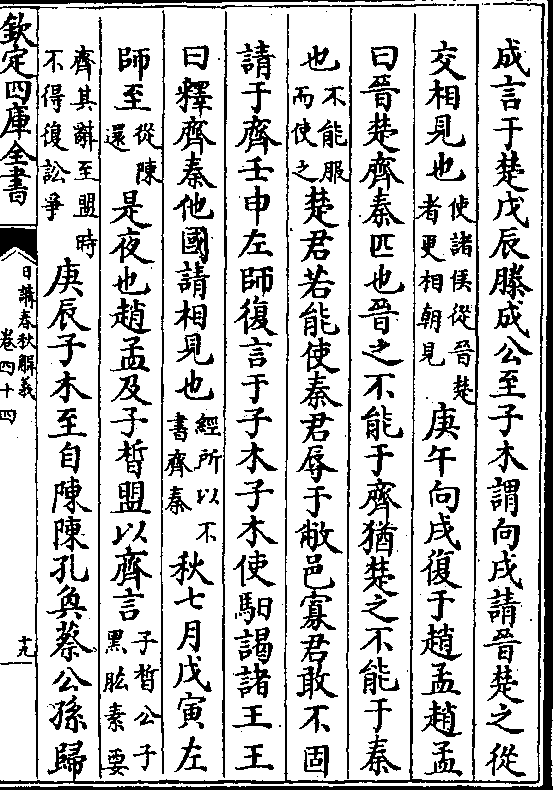 成言于楚戊辰滕成公至子木謂向戌請晉楚之從
交相見也使諸侯從晉楚者更相朝見庚午向戌復于趙孟趙孟
曰晉楚齊秦匹也晉之不能于齊猶楚之不能于秦
也不能服而使之楚君若能使秦君辱于敝邑寡君敢不固
請于齊壬申左師復言于子木子木使馹謁諸王王
曰釋齊秦他國請相見也經所以不書齊秦秋七月戊寅左
師至從陳還是夜也趙孟及子晳盟以齊言子晳公子黑肱素要
齊其辭至盟時不得復訟爭庚辰子木至自陳陳孔奐蔡公孫歸
欽定四庫全書
日講春秋解義
卷四十四
十九